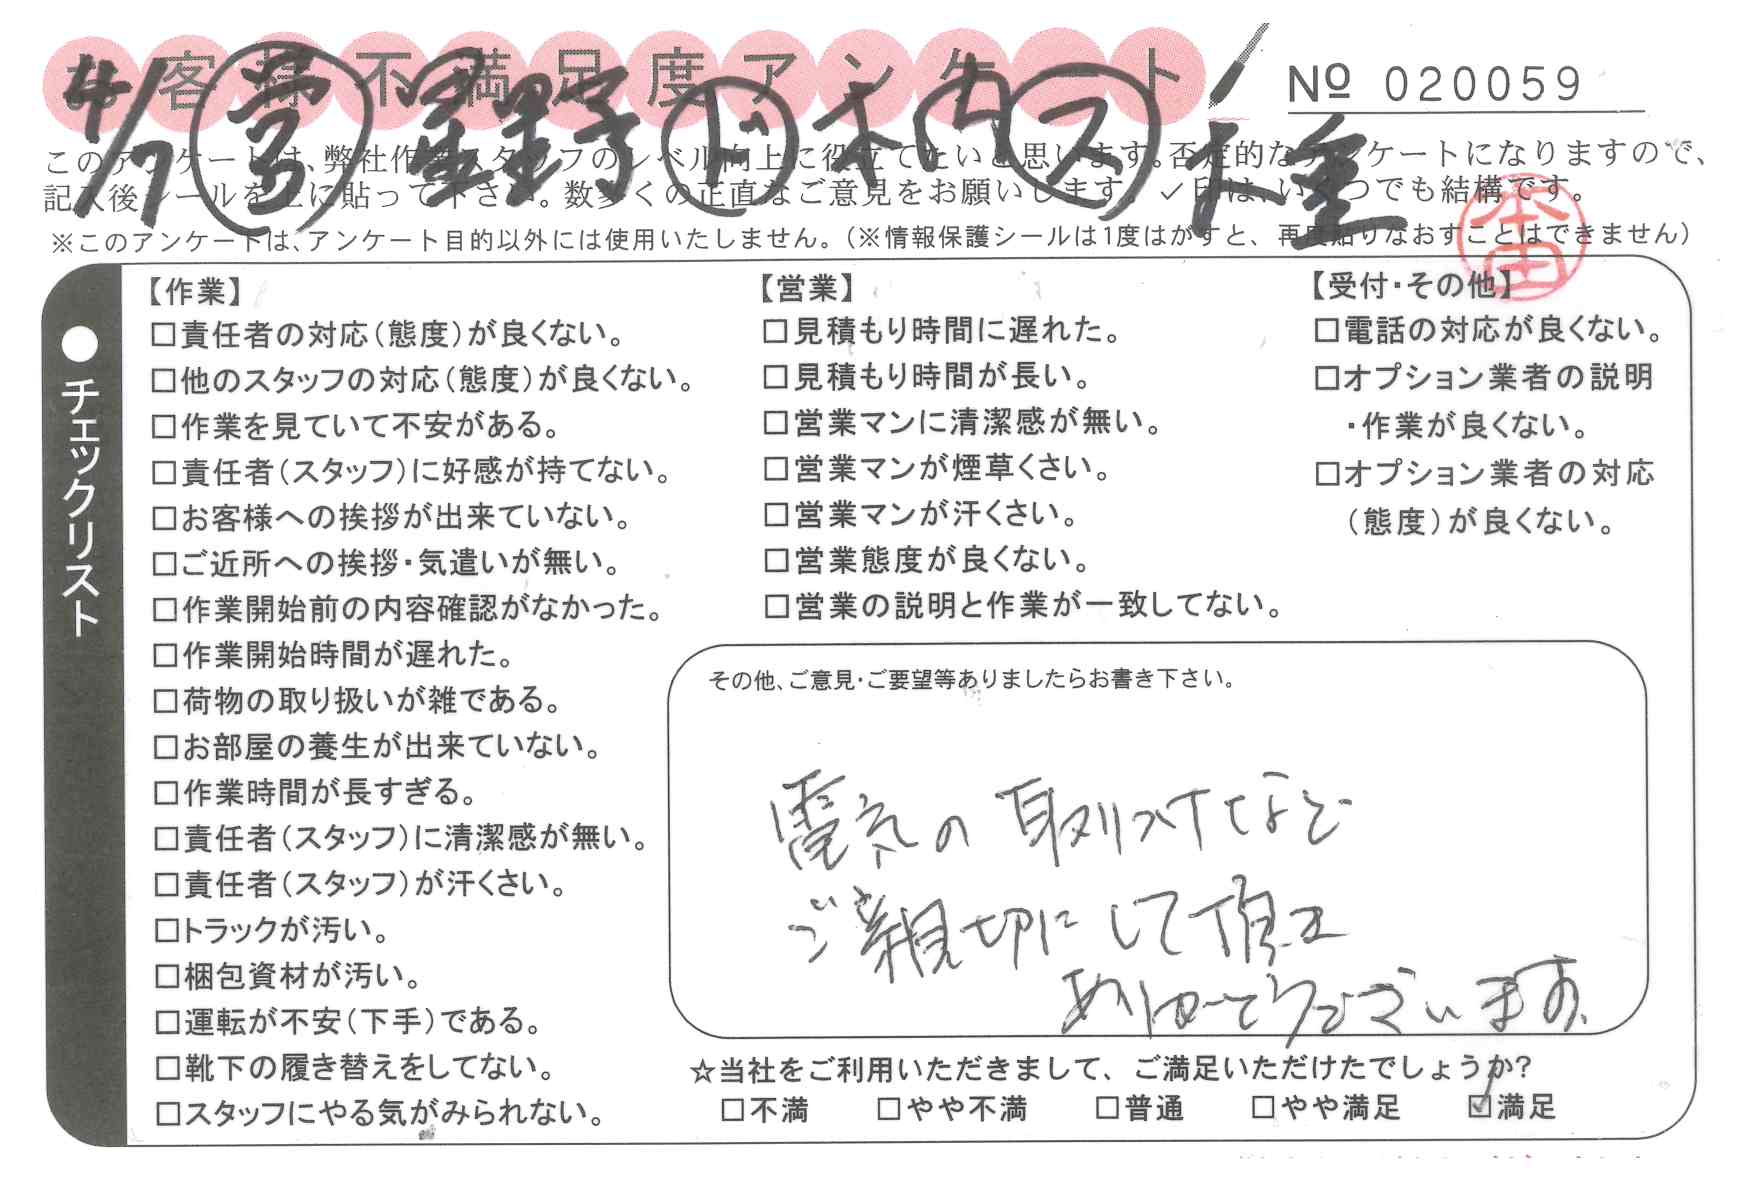 お客様不満足度アンケート
№ 020059
4/7 営 星野 ド 木内 ス 大重
このアンケートは、弊社作業スタッフのレベル向上に役立てたいと思います。否定的なアンケートになりますので、
記入後シールを上に貼って下さい。数多くの正直なご意見をお願いします。✓印は、いくつでも結構です。
※このアンケートは、アンケート目的以外には使用いたしません。(※情報保護シールは1度はがすと、再度貼りなおすことはできません)
●チェックリスト
【作業】
□責任者の対応(態度)が良くない。
□他のスタッフの対応(態度)が良くない。
□作業を見ていて不安がある。
□責任者(スタッフ)に好感が持てない。
□お客様への挨拶が出来ていない。
□ご近所への挨拶・気遣いが無い。
□作業開始前の内容確認がなかった。
□作業開始時間が遅れた。
□荷物の取り扱いが雑である。
□お部屋の養生が出来ていない。
□作業時間が長すぎる。
□責任者(スタッフ)に清潔感が無い。
□責任者(スタッフ)が汗くさい。
□トラックが汚い。
□梱包資材が汚い。
□運転が不安(下手)である。
□靴下の履き替えをしてない。
□スタッフにやる気がみられない。
【営業】
□見積もり時間に遅れた。
□見積もり時間が長い。
□営業マンに清潔感が無い。
□営業マンが煙草くさい。
□営業マンが汗くさい。
□営業態度が良くない。
□営業の説明と作業が一致してない。
【受付・その他】
□電話の対応が良くない。
□オプション業者の説明
・作業が良くない。
□オプション業者の対応
(態度)が良くない。
その他、ご意見・ご要望等ありましたらお書き下さい。
電気の取り付けなど
ご親切にして頂き
ありがとうございます。
☆当社をご利用いただきまして、ご満足いただけたでしょうか?
□不満 □やや不満 □普通 □やや満足 ☑満足